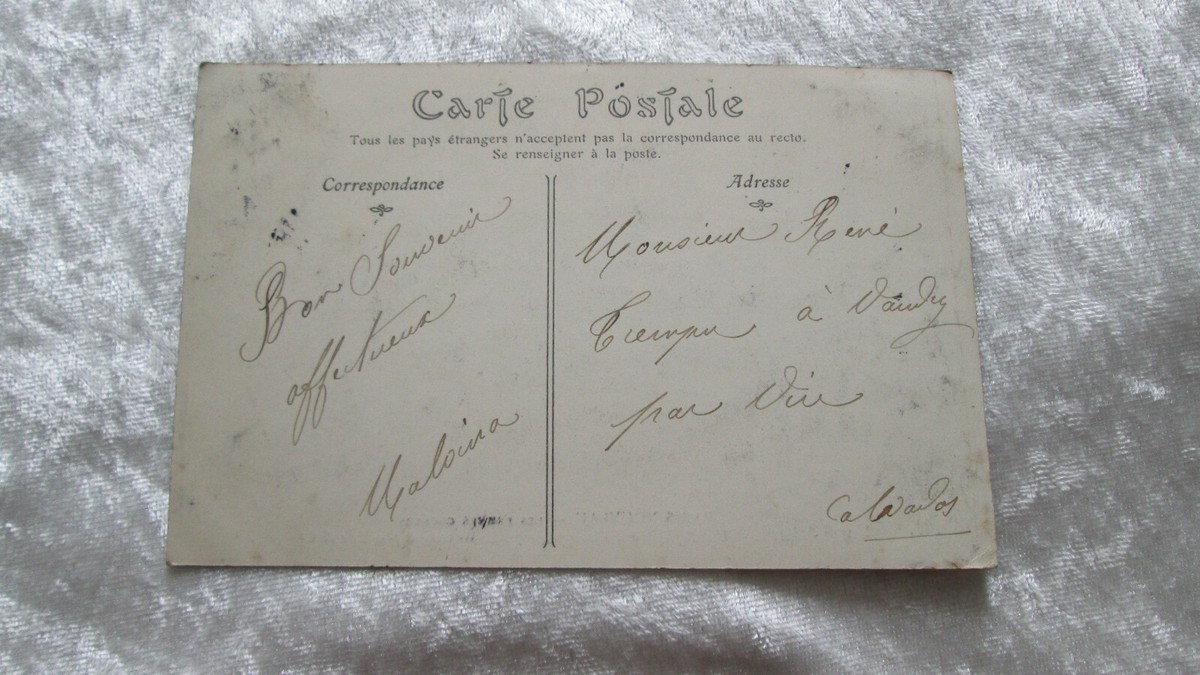 Carte Postale
Tous les pays étrangers n'acceptent pas la correspondance au recto.
Se renseigner à la poste.
Correspondance
Bon Souvenir
affectueux
Malvina
Adresse
Monsieur René
à Vaudry
par Vire
Calvados